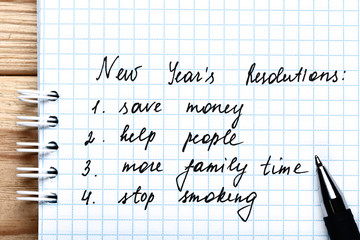 New Year's Resolutions:
1. save money
2. help people
3. more family time
4. stop smoking